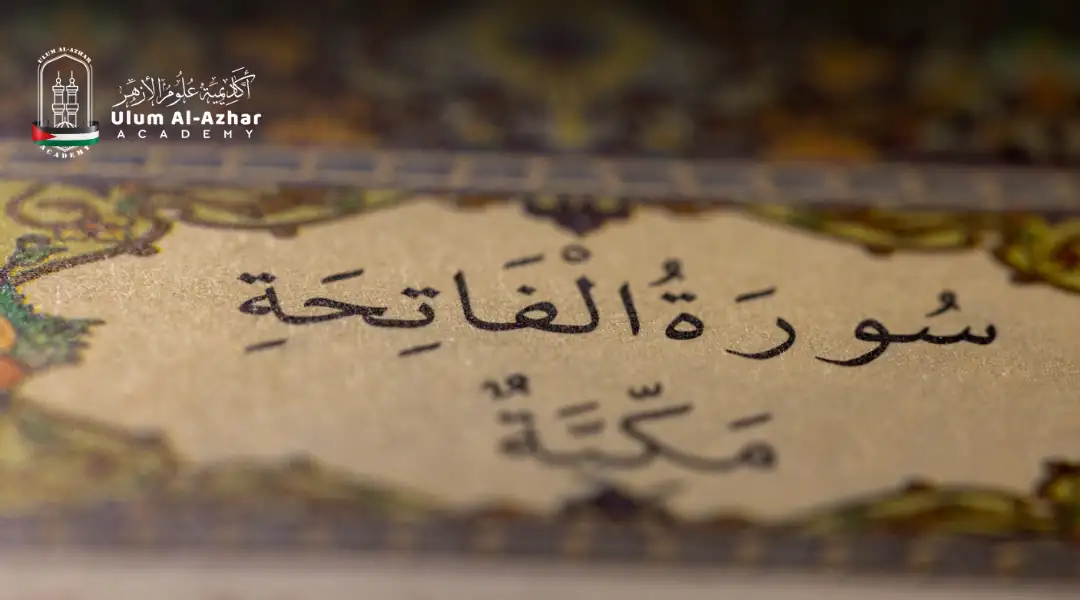 ULUM AL-AZHAR
ACADEMY
أكاديمية علوم الأزهر
Ulum Al-Azhar
ACADEMY
سُورَةُ الْفَاتِحَةِ
مَكِّيَّةٌ